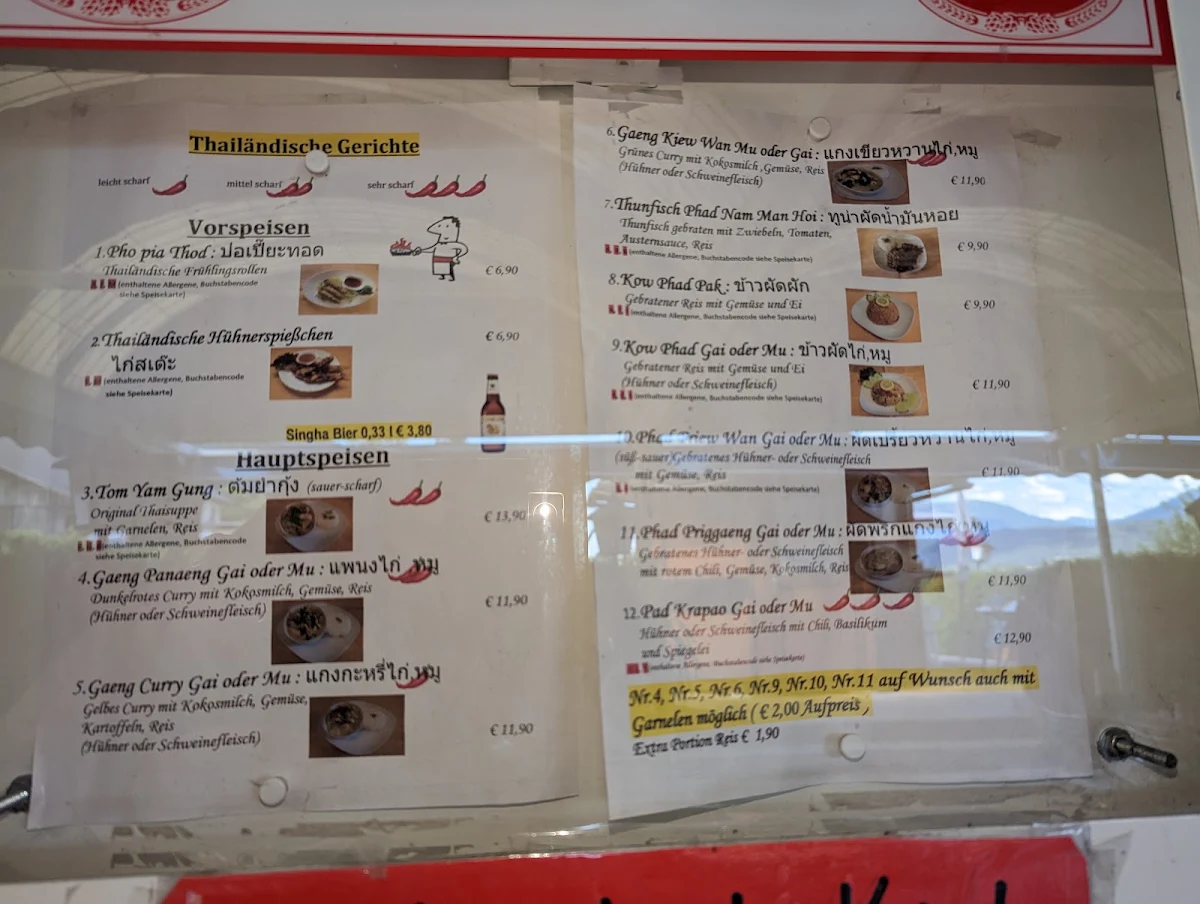 Thailändische Gerichte
leicht scharf mittel scharf sehr scharf
Vorspeisen
1.Pho pia Thod : ปอเปี๊ยะทอด
Thailändische Frühlingsrollen
(enthaltene Allergene, Buchstabencode
siehe Speisekarte)
€ 6,90
2.Thailändische Hühnerspießchen
€ 6,90
ไก่สเต๊ะ
(enthaltene Allergene, Buchstabencode
siehe Speisekarte)
Singha Bier 0,33 l € 3,80
Hauptspeisen
3.Tom Yam Gung : ต้มยำกุ้ง (sauer-scharf)
Original Thaisuppe
mit Garnelen, Reis
€ 13,90
(enthaltene Allergene, Buchstabencode
siehe Speisekarte)
4.Gaeng Panaeng Gai oder Mu : แพนงไก่ ,หมู
Dunkelrotes Curry mit Kokosmilch, Gemüse, Reis
(Hühner oder Schweinefleisch)
€ 11,90
5.Gaeng Curry Gai oder Mu : แกงกะหรี่ไก่,หมู
Gelbes Curry mit Kokosmilch, Gemüse,
Kartoffeln, Reis
(Hühner oder Schweinefleisch)
€ 11,90
6.Gaeng Kiew Wan Mu oder Gai : แกงเขียวหวานไก่,หมู
Grünes Curry mit Kokosmilch ,Gemüse, Reis
(Hühner oder Schweinefleisch)
€ 11,90
7.Thunfisch Phad Nam Man Hoi : ทูน่าผัดน้ำมันหอย
Thunfisch gebraten mit Zwiebeln, Tomaten,
Austernsauce, Reis
€ 9,90
(enthaltene Allergene, Buchstabencode siehe Speisekarte)
8.Kow Phad Pak : ข้าวผัดผัก
Gebratener Reis mit Gemüse und Ei
€ 9,90
(enthaltene Allergene, Buchstabencode siehe Speisekarte)
9.Kow Phad Gai oder Mu : ข้าวผัดไก่,หมู
Gebratener Reis mit Gemüse und Ei
(Hühner oder Schweinefleisch)
€ 11,90
(enthaltene Allergene, Buchstabencode siehe Speisekarte)
10.Phad Priew Wan Gai oder Mu : ผัดเปรี้ยวหวานไก่,หมู
(süß-sauer)Gebratenes Hühner- oder Schweinefleisch
mit Gemüse, Reis
€ 11,90
(enthaltene Allergene, Buchstabencode siehe Speisekarte)
11.Phad Priggaeng Gai oder Mu : ผัดพริกแกงไก่,หมู
Gebratenes Hühner- oder Schweinefleisch
mit rotem Chili, Gemüse, Kokosmilch, Reis
€ 11,90
12.Pad Krapao Gai oder Mu
Hühner oder Schweinefleisch mit Chili, Basilikum
und Spiegelei
€ 12,90
(enthaltene Allergene, Buchstabencode siehe Speisekarte)
Nr.4, Nr.5, Nr.6, Nr.9, Nr.10, Nr.11 auf Wunsch auch mit
Garnelen möglich ( € 2,00 Aufpreis )
Extra Portion Reis € 1,90